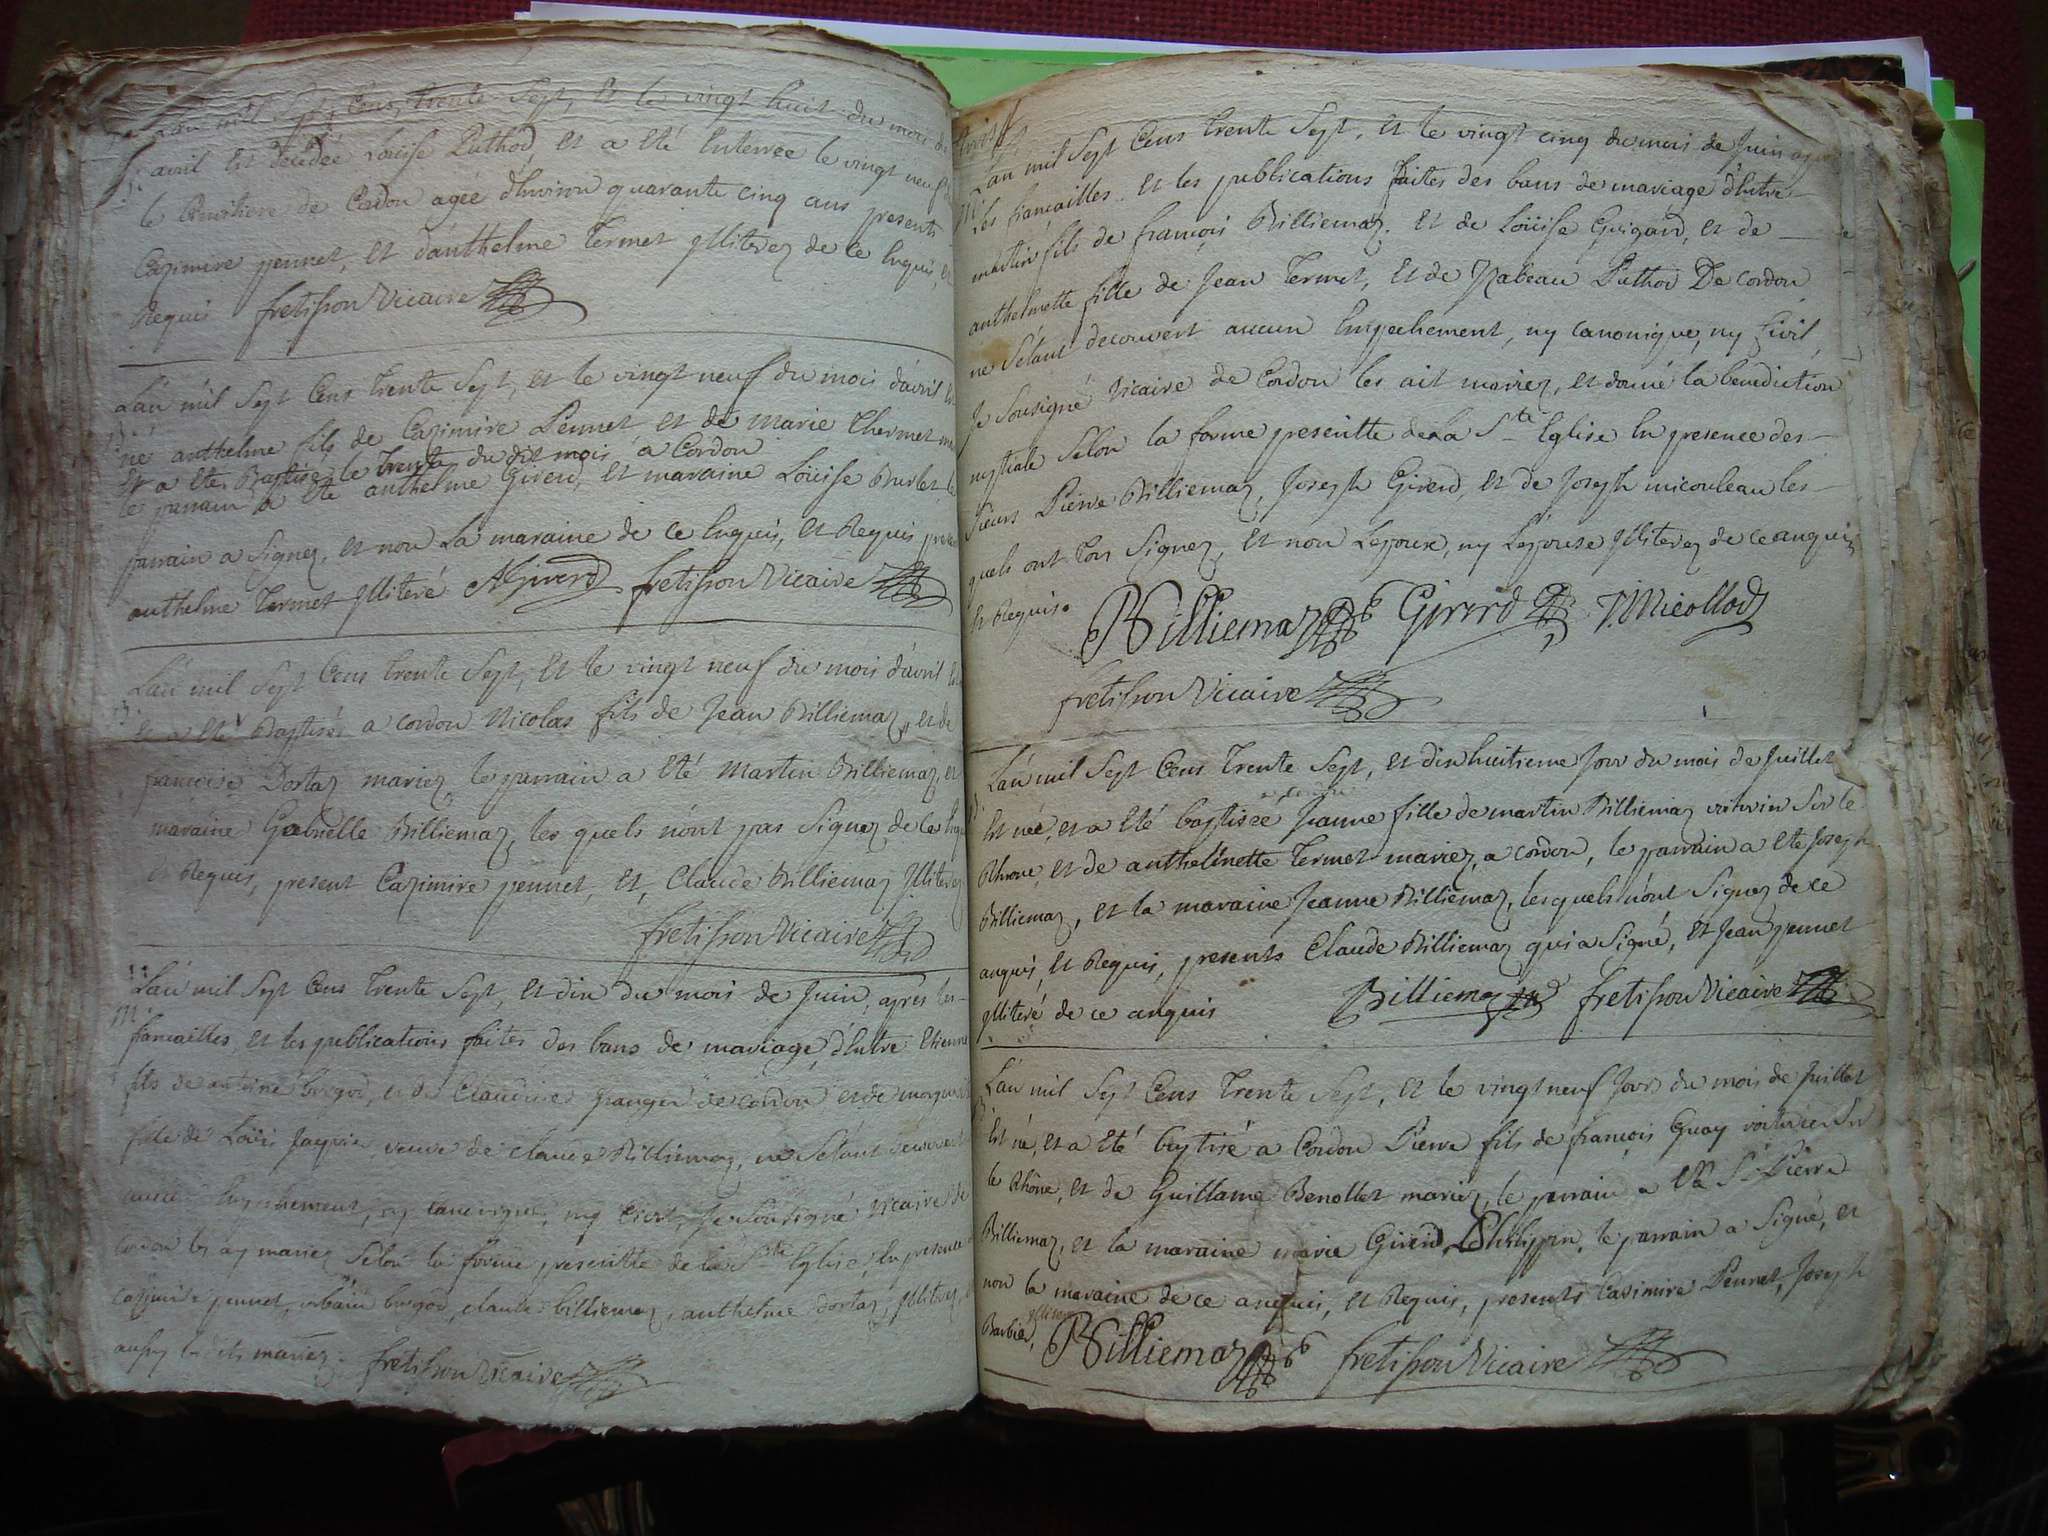 L'an mil sept Cens trente sept, et le vingt huit du mois de
avril est decedée Loüise Puthod, et a eté Enterrée le vingt neuf
le Cemitiere de Cordon agée d'environ quarante cinq ans presents
Cazimire pennet, et d'anthelme Termet Illiterez de ce Enquis, et
Requis fretisson Vicaire
L'an mil sept Cens trente sept, et le vingt neuf du mois d'avril est
né anthelme fils de Cazimire Pennet et de marie Thermet
et a eté Baptisé le trente du dit mois a Cordon
le parrain a eté anthelme Girerd, et maraine Loüise Burlet le
parrain a signez, et non La maraine de ce Enquis, et Requis present
anthelme Termet Illiteré AGirerd fretisson Vicaire
L'an mil sept Cens trente sept, et le vingt neuf du mois d'avril est
né et a eté Baptisés a cordon Nicolas fils de Jean Billiemaz, et de
françoise Dortaz mariez, le parrain a eté Martin Billiemaz, et
maraine Gabrielle Billiemaz, les quels n'ont pas Signez de ce Enquis
et Requis, present Cazimire pennet, et, Claude Billiemaz Illiterez
fretisson Vicaire
L'an mil sept Cens trente sept, et dix du mois de Juin, après les
M.
fiancailles, et les publications faites des bans de mariage, d'Entre Etienne
fils de antoine borgod, et de Claudine de cordon et de marguerite
fille de Loüis Jaquin veuve de claude Billiemaz, ne s'étant decouvert
aucun Empechement, ny canonique, ny Civil, Je Sousigné Vicaire de
Cordon les ay mariez selon la forme prescritte de la Ste Eglise, En presence
cazimire pennet, urbain borgod, claude billiemaz, anthelme dortaz, Illiterez
aussy les dits mariez. fretisson Vicaire
L'an mil sept Cens trente sept, et le vingt cinq du mois de Juin après
M.
Les fiancailles, et les publications faites des bans de mariage d'Entre
martin fils de françois Billiemaz, et de Loüise Guigard, et de
anthelmette fille de Jean Termet, et de Izabeau Puthod De Cordon
ne s'étant decouvert aucun Empechement, ny canonique, ny Civil,
Je Sousigné Vicaire de Cordon les ait mariez, et donné la benediction
nuptiale selon la forme prescritte de La Ste Eglise En presence des
sieurs Pierre Billiemaz, Joseph Girerd, et de Joseph micouleau les
quels ont tous Signez, et non L'epoux, ny L'epouse Illiterez de ce anquis
et Requis. Billiemaz Girerd J. Micollod
fretisson Vicaire
L'an mil sept Cens trente sept, et dix huitieme Jour du mois de Juillet
a cordon
Est née, et a eté baptisée Jeanne fille de martin Billiemaz voiturin sur le
Rhone, et de anthelmette Termet mariez, a cordon, le parrain a eté Joseph
Billiemaz, et la maraine Jeanne Billiemaz, lesquels n'ont signez de ce
anquis, et Requis, presents Claude Billiemaz qui a signé, et Jean pennet
Illiteré de ce anquis Billiemaz fretisson Vicaire
L'an mil sept Cens trente sept, et le vingt neuf Jour du mois de Juillet
Est né, et a eté baptisé a Cordon Pierre fils de françois Guay voiturier sur
le Rhône, et de Guillame Benollet mariez, le parrain a eté Sr Pierre
Billiemaz, et la maraine marie Girerd Philippin, le parrain a signé, et
non la maraine de ce anquis, et Requis, presents Casimire Pennet, Joseph
Barbier, Billiemaz fretisson Vicaire